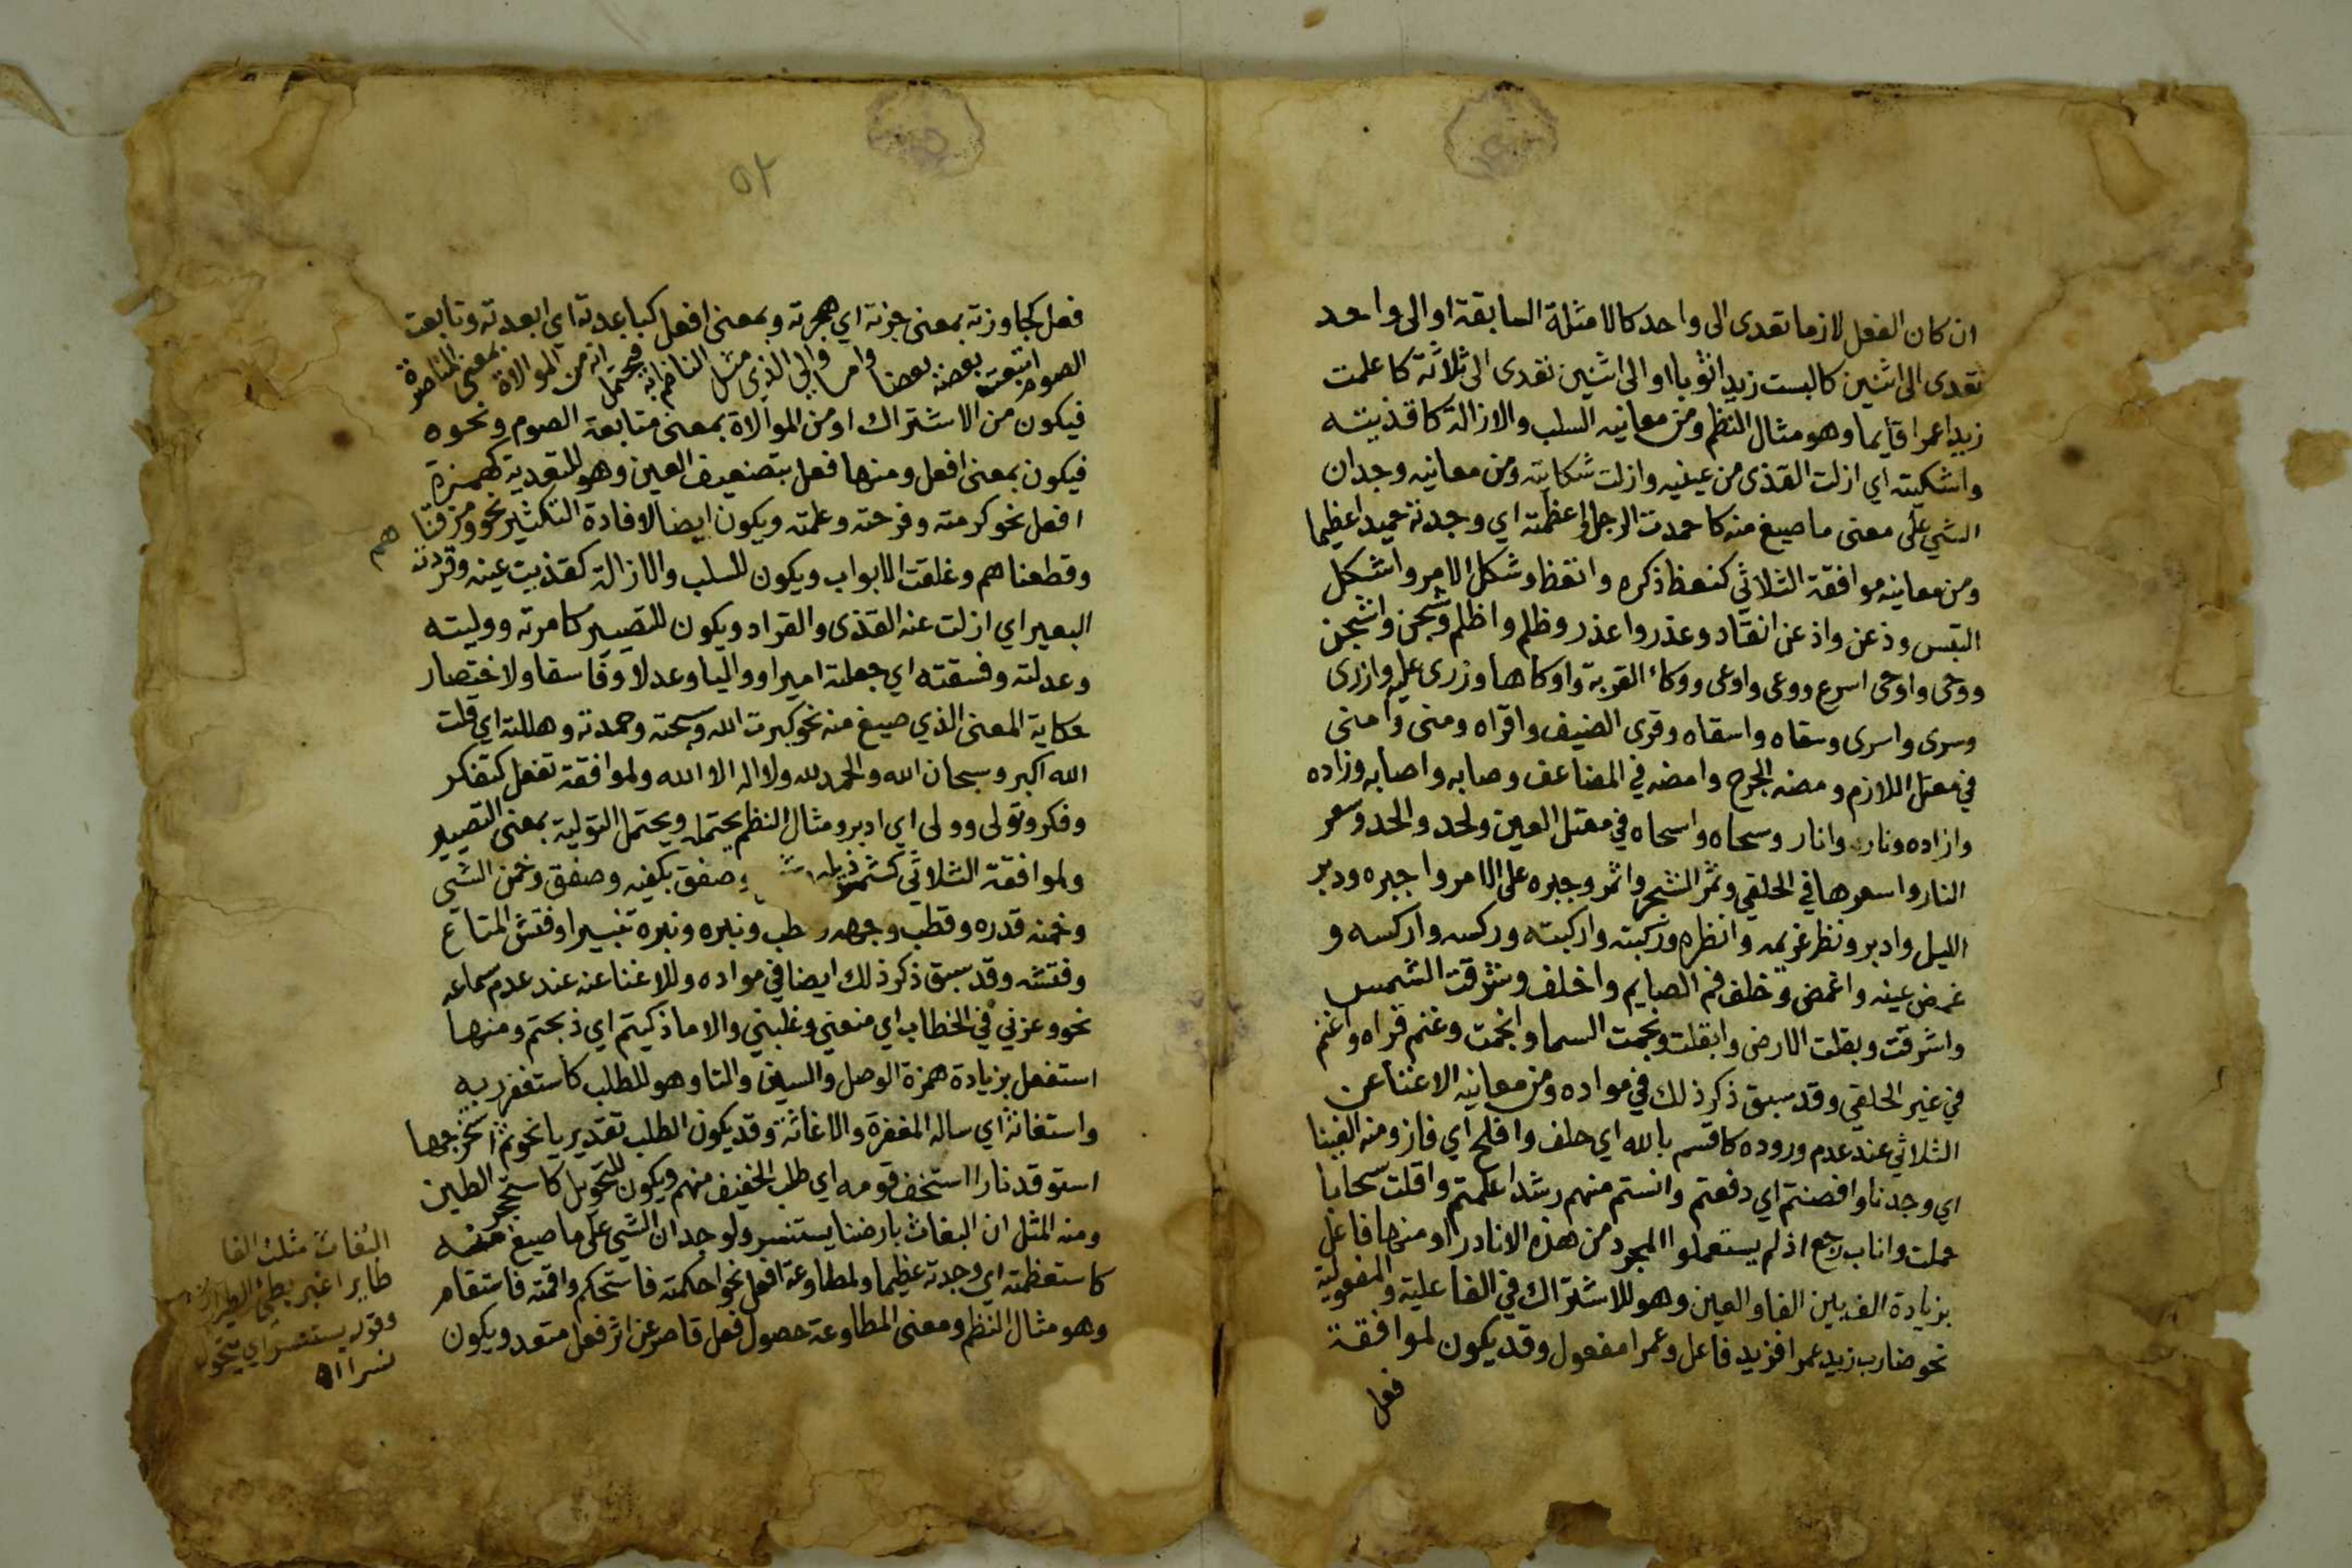 ان كان الفعل لازما تعدى الى واحد كالامثلة السابقة او الى واحد
تعدى الى اثنين كالبست زيدا ثوبا او الى اثنين تعدى الى ثلاثة كاعلمت
زيدا عمرا قايما وهو مثال النظم ومن معانيه السلب والازالة كاقذيته
واشكيته اي ازلت القذى من عينيه وازلت شكايته ومن معانيه وجدان
الشي على معنى ما صيغ منه كاحمدت الرجل واعظمته اي وجدته حميدا عظيما
ومن معانيه موافقة الثلاثي كنعظ ذكره وانعظ وشكل الامر واشكل
التبس وذعن واذعن انقاد وعذر واعذر وظلم واظلم وشجن واشجن
ووحى واوحى اسرع ووعى واوعى ووكاء القربة واوكاها وزرى عليه وازرى
وسرى واسرى وسقاه واسقاه وقرى الضيف واقراه ومنى وامنى
في معتل اللازم ومضه الجرح وامضه في المضاعف وصابه واصابه وزاده
وازاده ونار وانار وسحاه واسحاه في معتل العين ولحد والحد وسعر
النار واسعرها في الحلقي وثمر الشجر واثمر وجبره على الامر واجبره ودبر
الليل وادبر ونظر غريمه وانظره وركبته واركبته وركسه واركسه و
غمض عينه واغمض وخلف فم الصايم واخلف وشرقت الشمس
واشرقت وبقلت الارض وابقلت ونجمت السما وانجمت وغنم قراه واغنم
في غير الحلقي وقد سبق ذكر ذلك في مواده ومن معانيه الاغنا عن
الثلاثي عند عدم وروده كاقسم بالله اي حلف وافلح اي فاز ومنه الفينا
اي وجدنا وافضتم اي دفعتم وانستم منهم رشدا علمتم واقلت سحابا
حملت واناب رجع اذ لم يستعملوا المجرد من هذه الا نادرا ومنها فاعل
بزيادة الف بين الفا والعين وهو للاشتراك في الفاعلية والمفعولية
نحو ضارب زيد عمرا فزيد فاعل وعمرا مفعول وقد يكون لموافقة
فعل
٥٢
فعل كجاوزته بمعنى جزته اي هجرته وبمعنى افعل كباعدته اي ابعدته وتابعت
الصوم اتبعت بعضه بعضا واما والي الذي مثل الناظم به فيحتمل انه من الموالاة بمعنى المناصرة
فيكون من الاشتراك او من الموالاة بمعنى متابعة الصوم ونحوه
فيكون بمعنى افعل ومنها فعل بتضعيف العين وهو للتعدية كهمزة
افعل نحو كرمته وفرحته وعلمته ويكون ايضا لافادة التكثير نحو ومزقنا
هم
وقطعناهم وغلقت الابواب ويكون للسلب والازالة كقذيت عينه وقردت
البعير اي ازلت عنه القذى والقراد ويكون للتصيير كامرته ووليته
وعدلته وفسقته اي جعلته اميرا وواليا وعدلا وفاسقا ولاختصار
حكاية المعنى الذي صيغ منه نحو كبرت الله وسبحته وحمدته وهللته اي قلت
الله اكبر وسبحان الله والحمد لله ولا اله الا الله ولموافقة تفعل كتفكر
وفكر وتولى وولى اي ادبر ومثال النظم يحتمله ويحتمل التولية بمعنى التصيير
ولموافقة الثلاثي كشمر ذيله وصفق بكفيه وصفق وخمن الشي
وخمنه قدره وقطب وجهه وقطب ونبره ونبره تنبيرا وفتش المتاع
وفتشه وقد سبق ذكر ذلك ايضا في مواده وللاغنا عنه عند عدم سماعه
نحو وعزني في الخطاب اي منعني وغلبني والا ما ذكيتم اي ذبحتم ومنها
استفعل بزيادة همزة الوصل والسين والتا وهو للطلب كاستغفر ربه
واستغاثه اي ساله المغفرة والاغاثة وقد يكون الطلب تقديريا نحو ثم استخرجها
استوقد نارا استخف قومه اي طلب الخفيف منهم ويكون للتحويل كاستحجر الطين
ومنه المثل ان البغاث بارضنا يستنسر ولوجدان الشي على ما صيغ منه
كاستعظمته اي وجدته عظيما ولمطاوعة افعل نحو احكمته فاستحكم واقمته فاستقام
وهو مثال النظم ومعنى المطاوعة حصول فعل قاصر عن اثر فعل متعد ويكون
البغاث مثلث الفا
طاير اغبر بطئ الطيران
وقوله يستنسر اي يتحول
نسرا اه